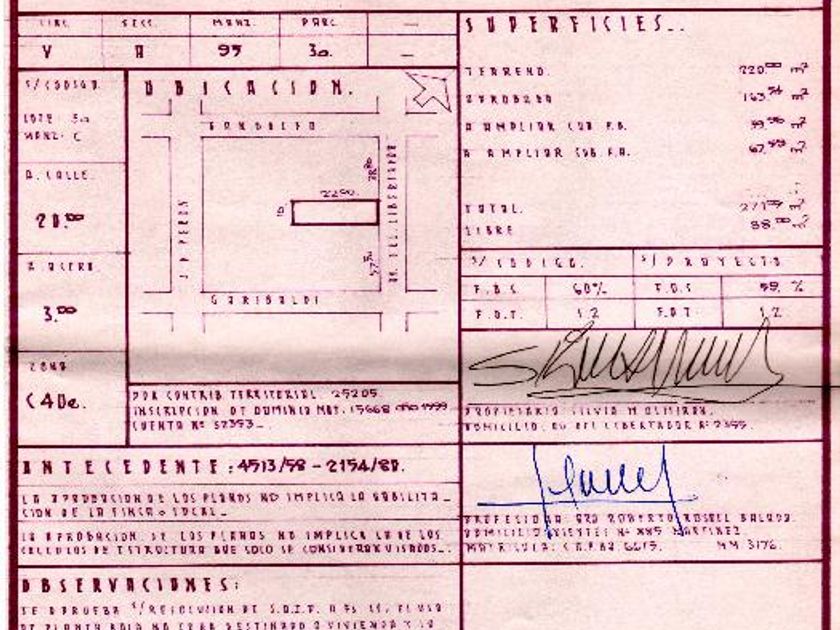 CIRC. SECC. MANZ. PARC.
V A 95 3a.
S/CODIGO.
LOTE: 3a
MANZ: C
A. CALLE.
20.00
A. ACERA.
3.00
ZONA
C4De.
UBICACION.
GANDOLFO
J.D. PERON
AV. DEL LIBERTADOR
22.00.
10.
GARIBALDI
POR CONTRIB TERRITORIAL. 25205.
INSCRIPCION DE DOMINIO MAT. 15668 año 1999
CUENTA Nº 52353_
ANTECEDENTE: 4513/58 - 2154/80.
LA APROBACION DE LOS PLANOS NO IMPLICA LA HABILITA_
CION DE LA FINCA o LOCAL_
LA APROBACION DE LOS PLANOS NO IMPLICA LA DE LOS
CALCULOS DE ESTRUCTURA QUE SOLO SE CONSIDERAN VISADOS_.
OBSERVACIONES:
SE APRUEBA S/RESOLUCION DE EL USO
DE PLANTA BAJA NO SERA DESTINADO A VIVIENDA Y LA
SUPERFICIES_.
TERRENO. 220.00 m²
APROBADO 163.54 m²
A AMPLIAR CUB. P.B. m²
A AMPLIAR CUB. P.A. m²
TOTAL. m²
LIBRE 88.00 m²
S/ CODIGO. S/ PROYECTO
F.O.S. 60% F.O.S %
F.O.T. 1.2 F.O.T. 1.2
PROPIETARIO: SILVIA M
DOMICILIO. AV DEL LIBERTADOR Nº 2355.
PROFESIONAL: ARQ ROBERTO
DOMICILIO: Nº MARTINEZ.
MATRICULA: C.A.P.BA 6615. MM 3176.